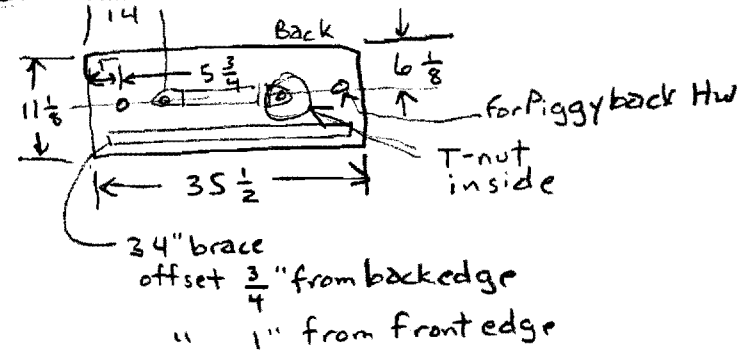 14
Back
6 1/8
1
5 3/4
11 1/8
For Piggyback HW
T-nut
inside
35 1/2
34" brace
offset 3/4" from back edge
" 1" from front edge